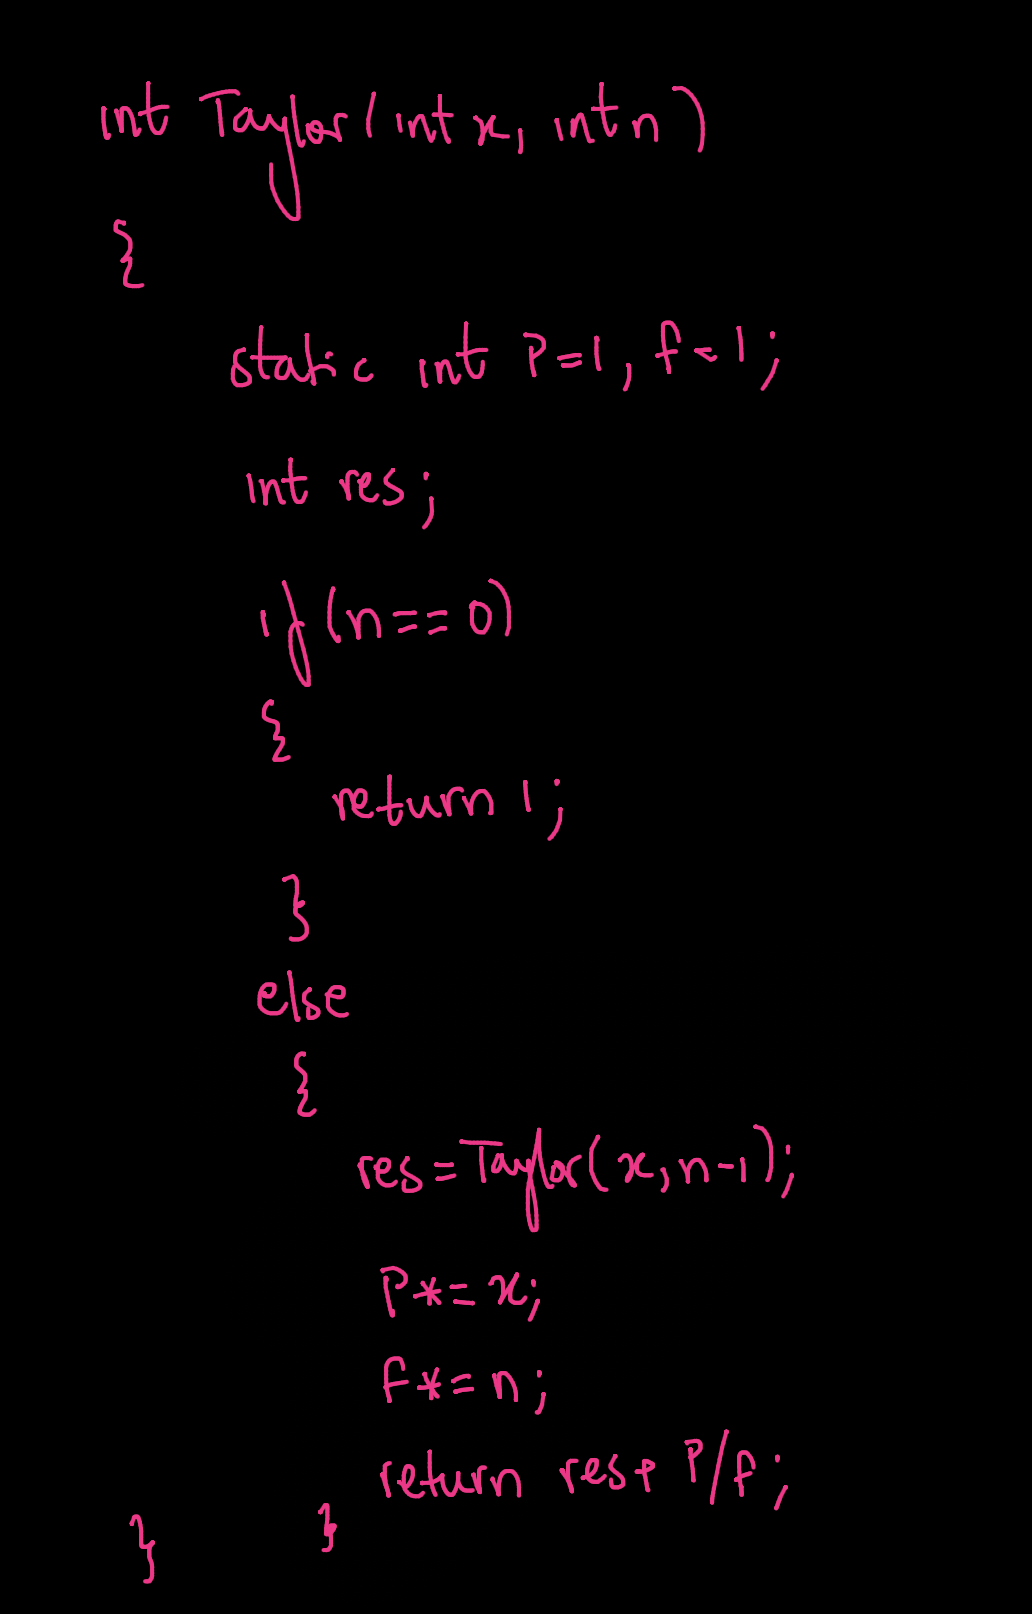 int Taylor(int x, int n)
{
static int P=1, f=1;
int res;
if(n==0)
{
return 1;
}
else
{
res=Taylor(x,n-1);
P*=x;
f*=n;
return res+P/f;
} }